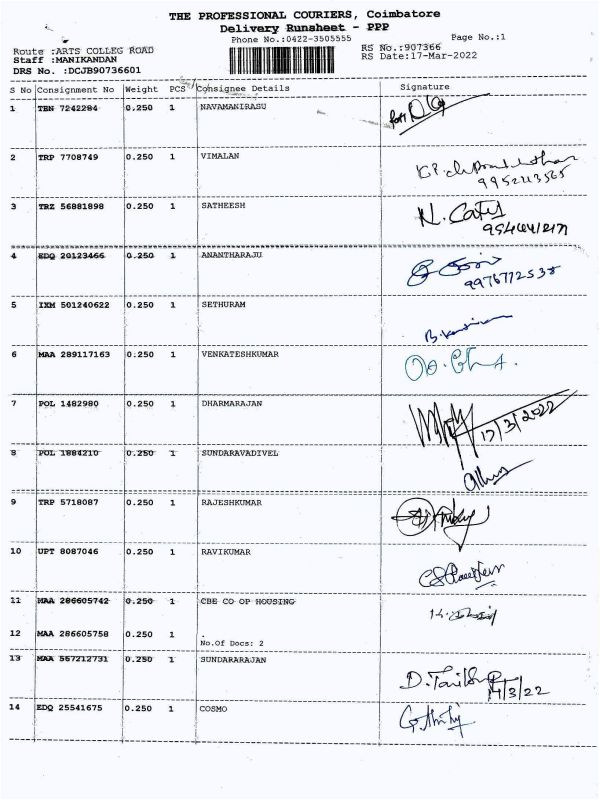 THE PROFESSIONAL COURIERS, Coimbatore
Delivery Runsheet - PPP
Phone No.:0422-3505555 Page No.:1
Route :ARTS COLLEG ROAD RS No.:907366
Staff :MANIKANDAN RS Date:17-Mar-2022
DRS No. :DCJB90736601
S No Consignment No Weight PCS Consignee Details Signature
1 TEN 7242284 0.250 1 NAVAMANIRASU
2 TRP 7708749 0.250 1 VIMALAN
9952113565
3 TRZ 56881898 0.250 1 SATHEESH
4 EDQ 20123466 0.250 1 ANANTHARAJU
9976772535
5 IXM 501240622 0.250 1 SETHURAM
6 MAA 289117163 0.250 1 VENKATESHKUMAR
7 POL 1482980 0.250 1 DHARMARAJAN
17/3/2022
8 POL 1884210 0.250 1 SUNDARAVADIVEL
9 TRP 5718087 0.250 1 RAJESHKUMAR
10 UPT 8087046 0.250 1 RAVIKUMAR
11 MAA 286605742 0.250 1 CBE CO OP HOUSING
12 MAA 286605758 0.250 1
No.Of Docs: 2
13 MAA 567212731 0.250 1 SUNDARARAJAN
14 EDQ 25541675 0.250 1 COSMO